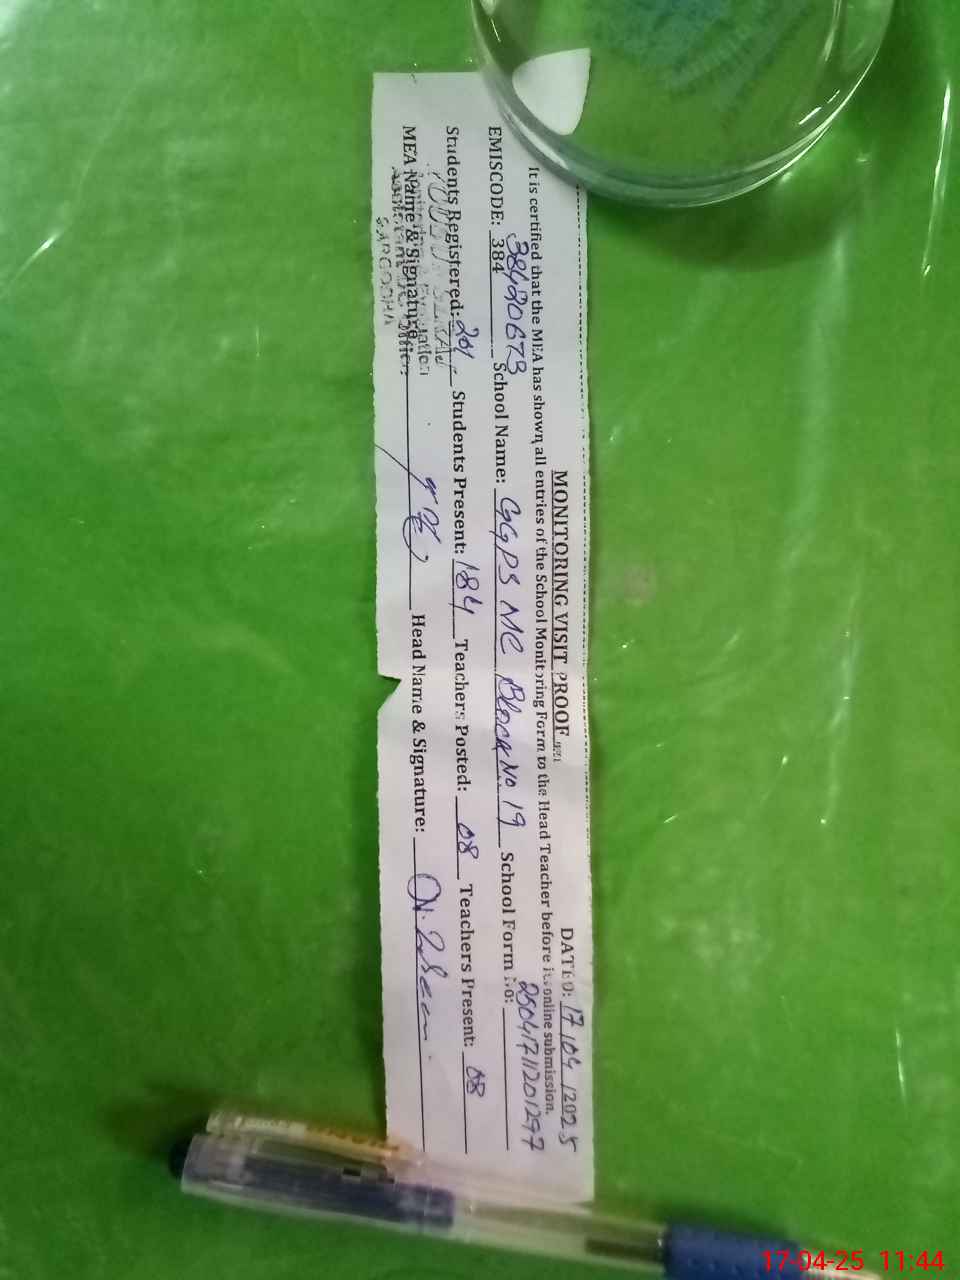 MONITORING VISIT PROOF
DATED: 17/04/2025
It is certified that the MEA has shown all entries of the School Monitoring Form to the Head Teacher before its online submission.
EMISCODE: 384 38420673 School Name: GGPS MC Block No 19 School Form No: 25041711201297
Students Registered: 201 Students Present: 184 Teachers Posted: 08 Teachers Present: 08
MEA Name & Signature Head Name & Signature:
SARGODHA
17-04-25 11:44